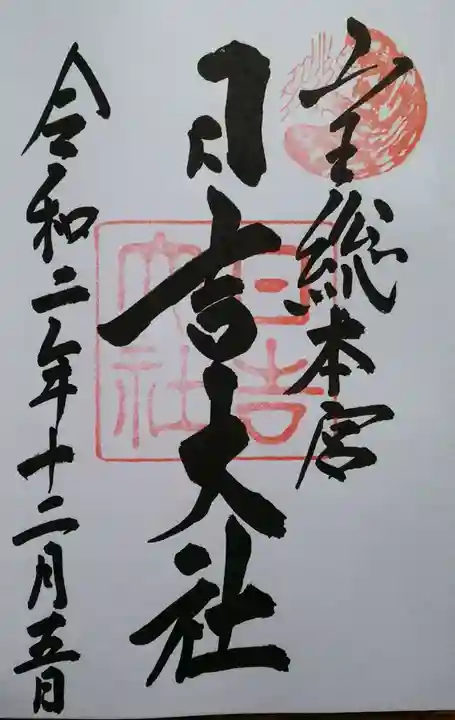 山王総本宮
日吉大社
令和二年十二月五日
日吉
大社